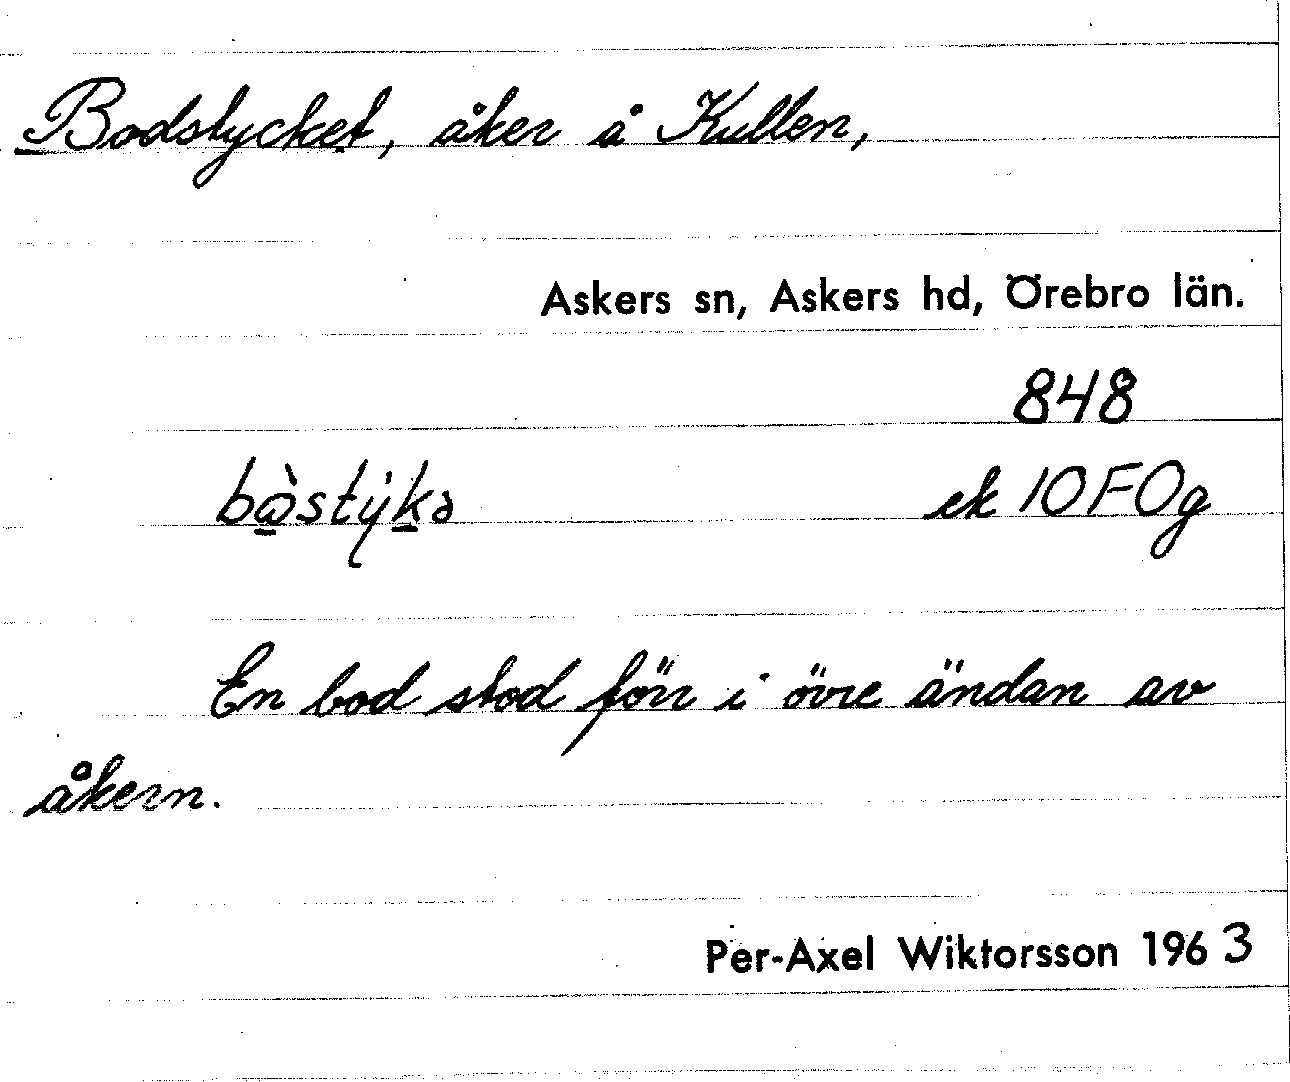 Bodstycket, åker å Kullen,
Askers sn, Askers hd, Örebro län.
848
bɷ̠̀stẏk̠ə ek 10 F Og
En bod stod förr i övre ändan av
åkern.
Per-Axel Wiktorsson 1963